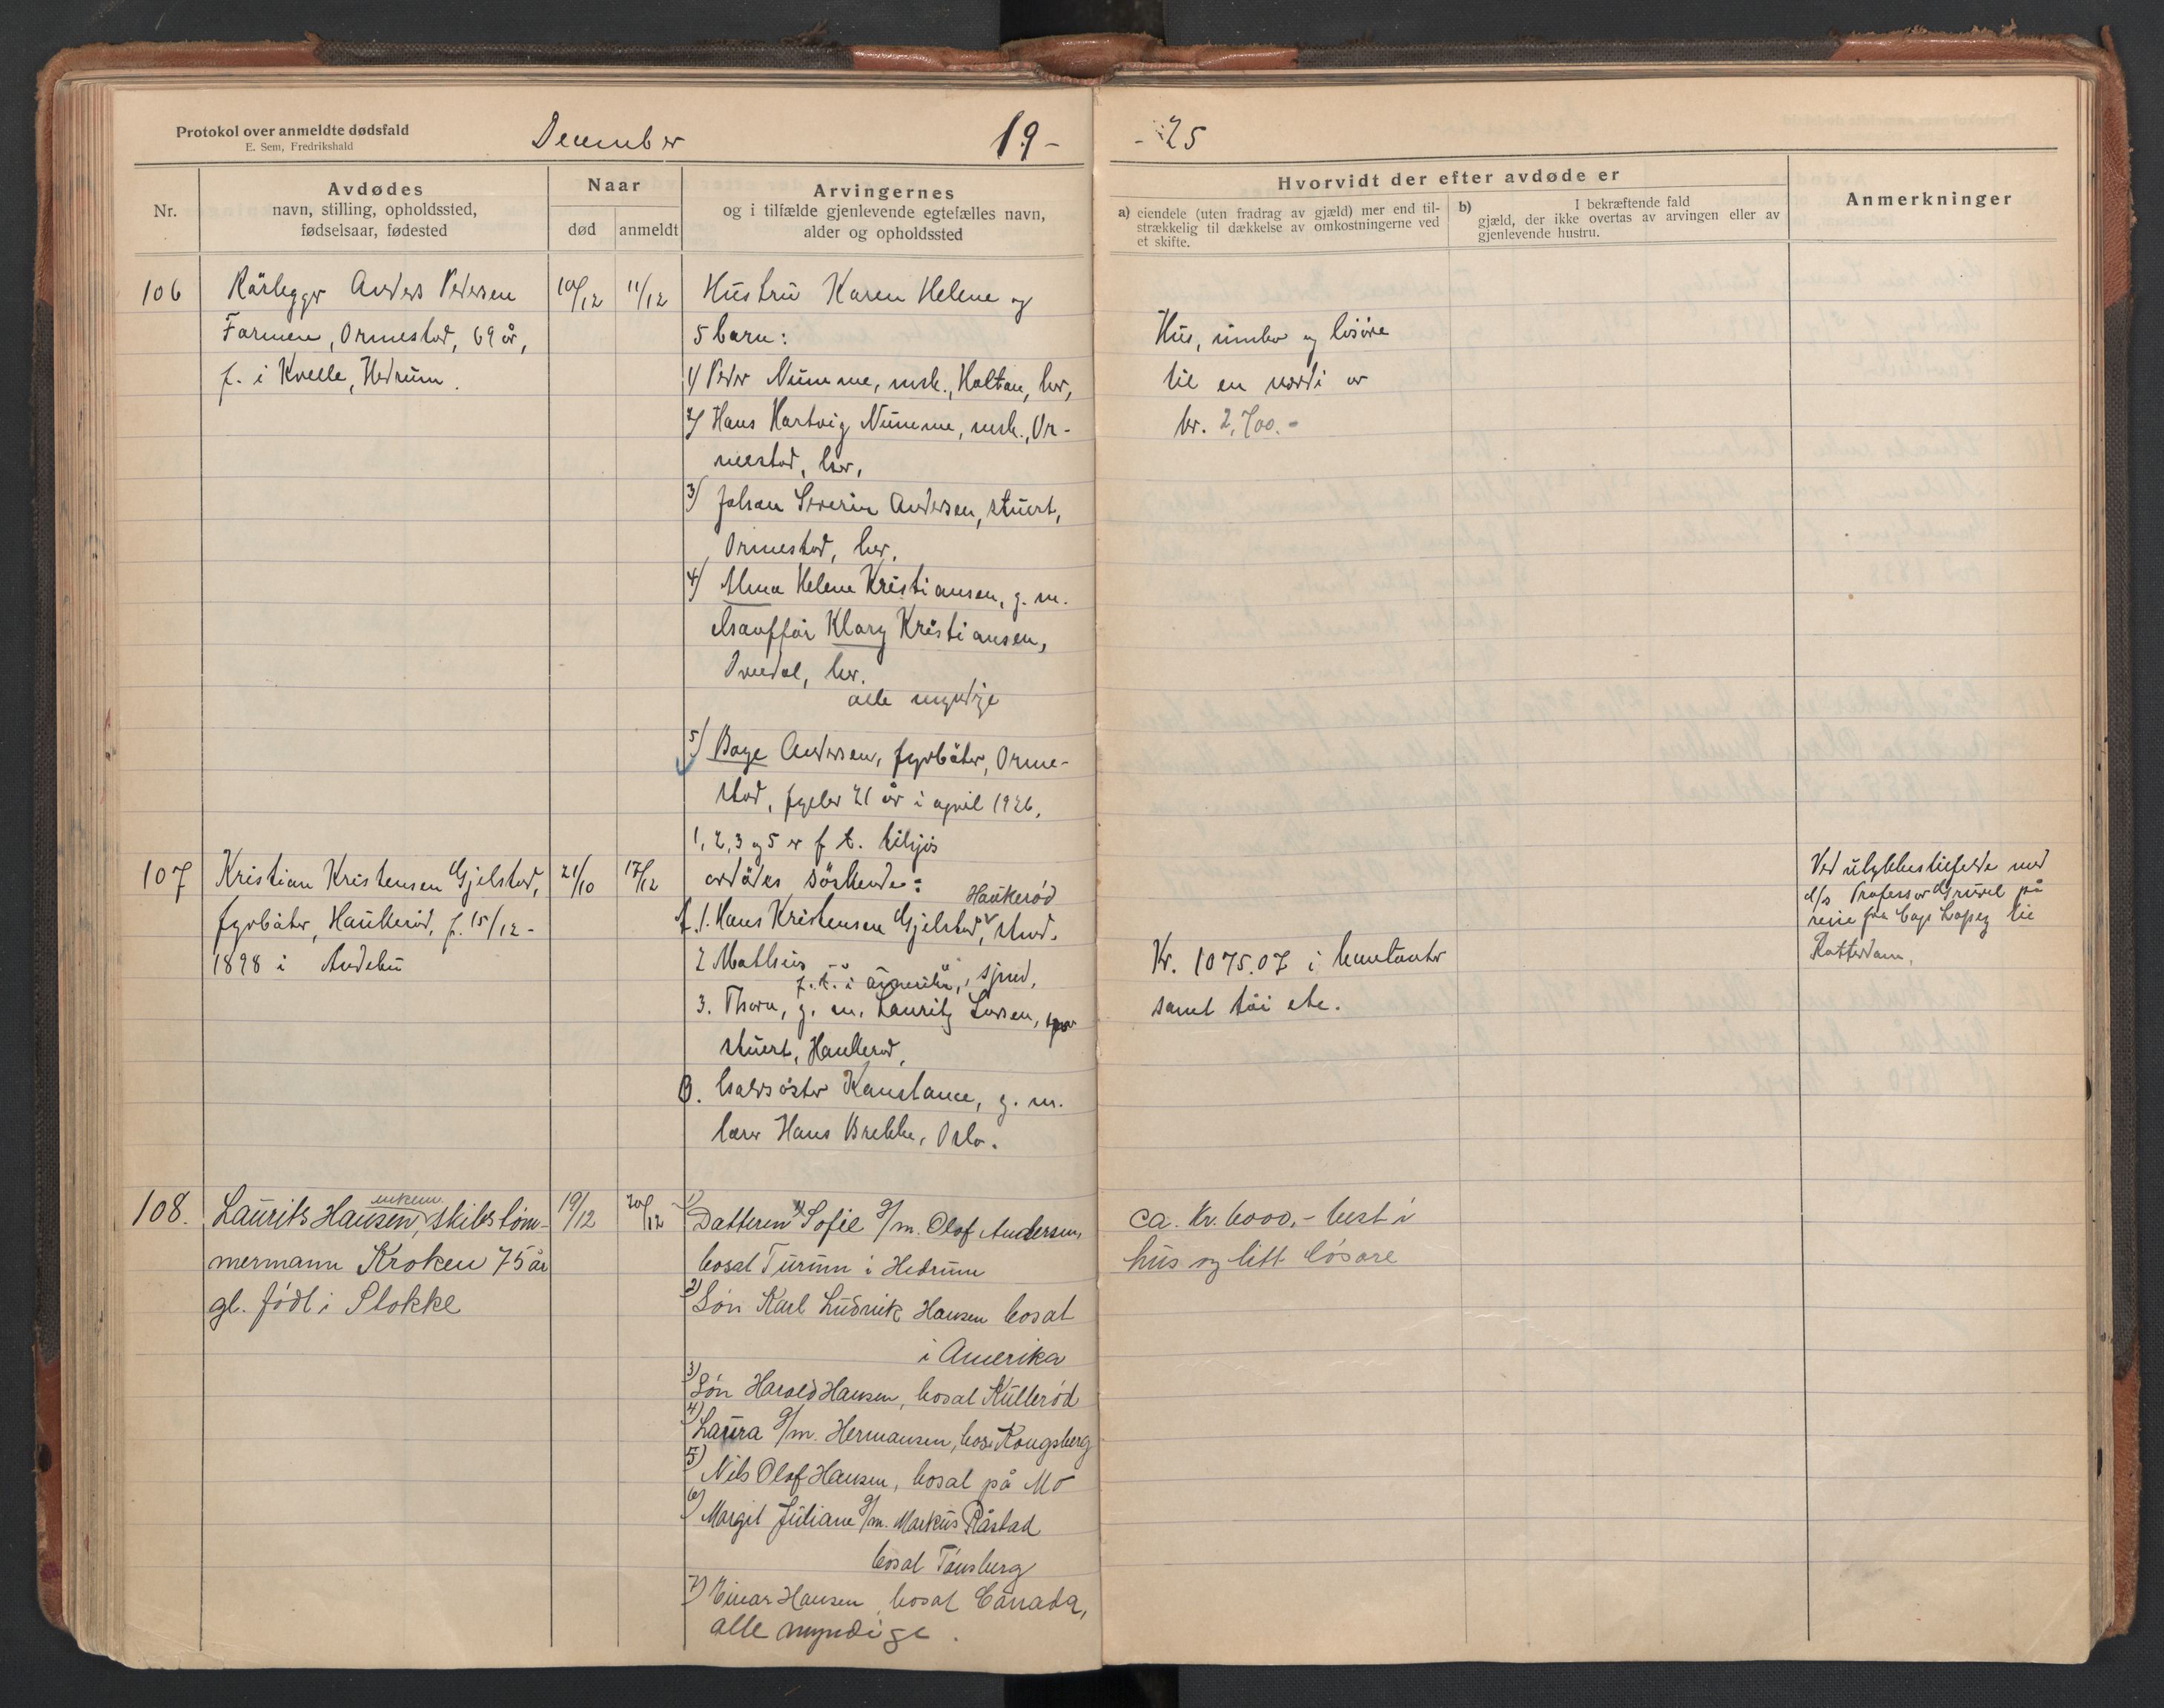 Protokol over anmeldte dødsfald
E. Sem, Fredrikshald
December 19-
-25
Nr.
Avdødes
navn, stilling, opholdssted,
fødselsaar, fødested
Naar
død
anmeldt
Arvingernes
og i tilfælde gjenlevende egtefælles navn,
alder og opholdssted
Hvorvidt der efter avdøde er
a) eiendele (uten fradrag av gjæld) mer end til-
strækkelig til dækkelse av omkostningerne ved
et skifte.
b) I bekræftende fald
gjæld, der ikke overtas av arvingen eller av
gjenlevende hustru.
Anmerkninger
106
Rörlegger Anders Pedersen
Farmen, Ormestad, 69 år,
f. i Kvelle, Hedrum.
10/12
11/12
Hustru Karen Helene og
5 barn:
1) Peder Numme, msk., Holtan, her,
2) Hans Hartvig Numme, msk., Or-
mestad, her,
3) Johan Severin Andersen, stuert,
Ormestad, her,
4) Alma Helene Kristiansen, g. m.
chauffør Klary Kristiansen,
her.
alle myndige
5) Bage Andersen, fyrbøter, Orme-
stad, fyller 21 år i april 1926.
1, 2, 3 og 5 er f. t. tilsjøs
Hus, innbo og løsøre
til en verdi av
kr. 2,700.-
107
Kristian Kristensen Gjelstad,
fyrbøter, Haukerød, f. 15/12-
1898 i Andebu
21/10
17/12
avdødes søskende:
Haukerød
A. 1. Hans Kristensen Gjelstad, stud.
2 Matheus -"-
f. t. i Amerika, sjmd,
3. Thora, g. m. Lauritz Larsen,
stuert, Haukerød,
B. halvsøster Konstance, g. m.
lærer Hans Brekke, Oslo.
Kr. 1075.07 i kontanter
samt tøi etc.
Ved ulykkestilfelde med
d/s Professor Gruvel på
reise fra Cap Lopez til
Rotterdam.
108.
enkem.
Laurits Hansen, skibstöm-
mermann Kroken 75 år
gl. födt i Stokke
19/12
20/12
1) Datteren Sofie g/m. Olof Andersen,
bosat Turum i Hedrum
2) Sön Karl Ludvik Hansen bosat
i Amerika
3) Sön Harald Hansen, bosat Kullerød
4) Laura g/m. Hermansen, bos. Kongsberg
5) Nils Olof Hansen, bosat på Mo
6) Margit Juliane g/m. Markus Råstad
bosat Tönsberg
7) Einar Hansen, bosat Canada,
alle myndige.
ca. kr. 6000,- best i
hus og litt lösøre